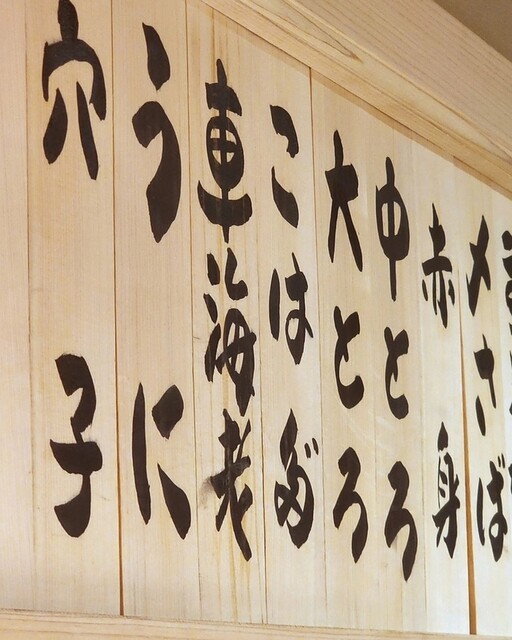 〆さば
赤身
中とろ
大とろ
こはだ
車海老
うに
穴子